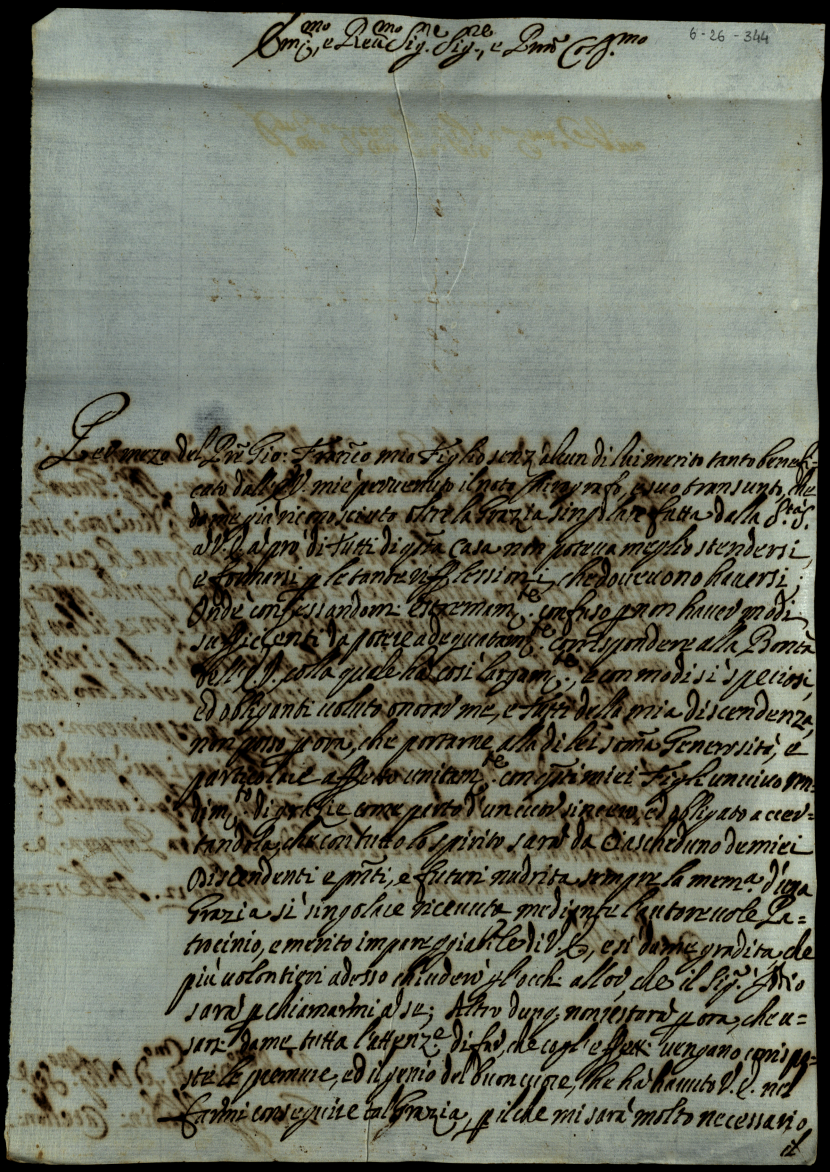 Em.mo, e Reu.mo Sig.re Sig.re, e Pnẽ Col.mo
6-26-344
Per mezo del Prẽ Gio: Franc̃o mio Figlio senz'alcun di lui merito tanto benefi-
cato dall'E.V. mi è peruenuto il noto Chirografo, e suo transunto, che
da me già riconosciuto oltre la Grazia singolare fatta dalla S.tà S.
a V.E. à prò di tutti di q̃sta Casa non poteua meglio stendersi,
e formarsi p̱ le tante rifflessioni, che doueuono hauersi;
Onde confessandomi estremam.te confuso p̱ non hauer modi
sufficienti da potere adequatam.te corrispondere alla Bontà
dell'E.V. colla quale hà così largam.te, e con modi sì speciosi,
ed obliganti uoluto onorarme, e tutti della mia discendenza,
non posso p̱ ora, che portarne alla di lei som̃a Generosità, e
particolare affetto unitam.te con q̃sti miei Figli un uiuo ren-
dim.to di grazie come parto d'un cuor sincero, ed obligato accer-
tandola, che con tutto lo spirito sarà da ciascheduno de miei
Discendenti e pñti, e futuri nudrita sempre la mem.a d'una
Grazia sì singolare riceuuta mediante l'autoreuole Pa-
trocinio, e merito impareggiabile di V.E., e sì da me gradita, che
più uolontieri adesso chiuderò gl'occhi allor, che il Sig.re Iddio
sarà p̱ chiamarmi a se; Altro dunq. non resterà p̱ ora, che u-
sarsi da me tutta l'attenz.e di far, che cogl'effetti uengano corrispo-
ste le premure, ed il genio del buon cuore, che hà hauuto V.E. nel
farmi conseguire tal Grazia, p̱ il che mi sarà molto necessario
il